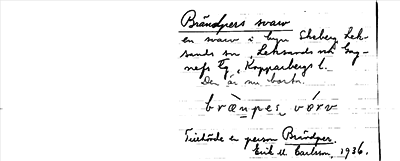 Brändpers svarv
en svarv i byn Ekeberg Lek-
sands sn, Leksands och Gag-
nefs tg, Kopparbergs l.
Den är nu borta.
brænpes vórv
Tillhörde en person Brändper.
Erik M Carlson, 1936.